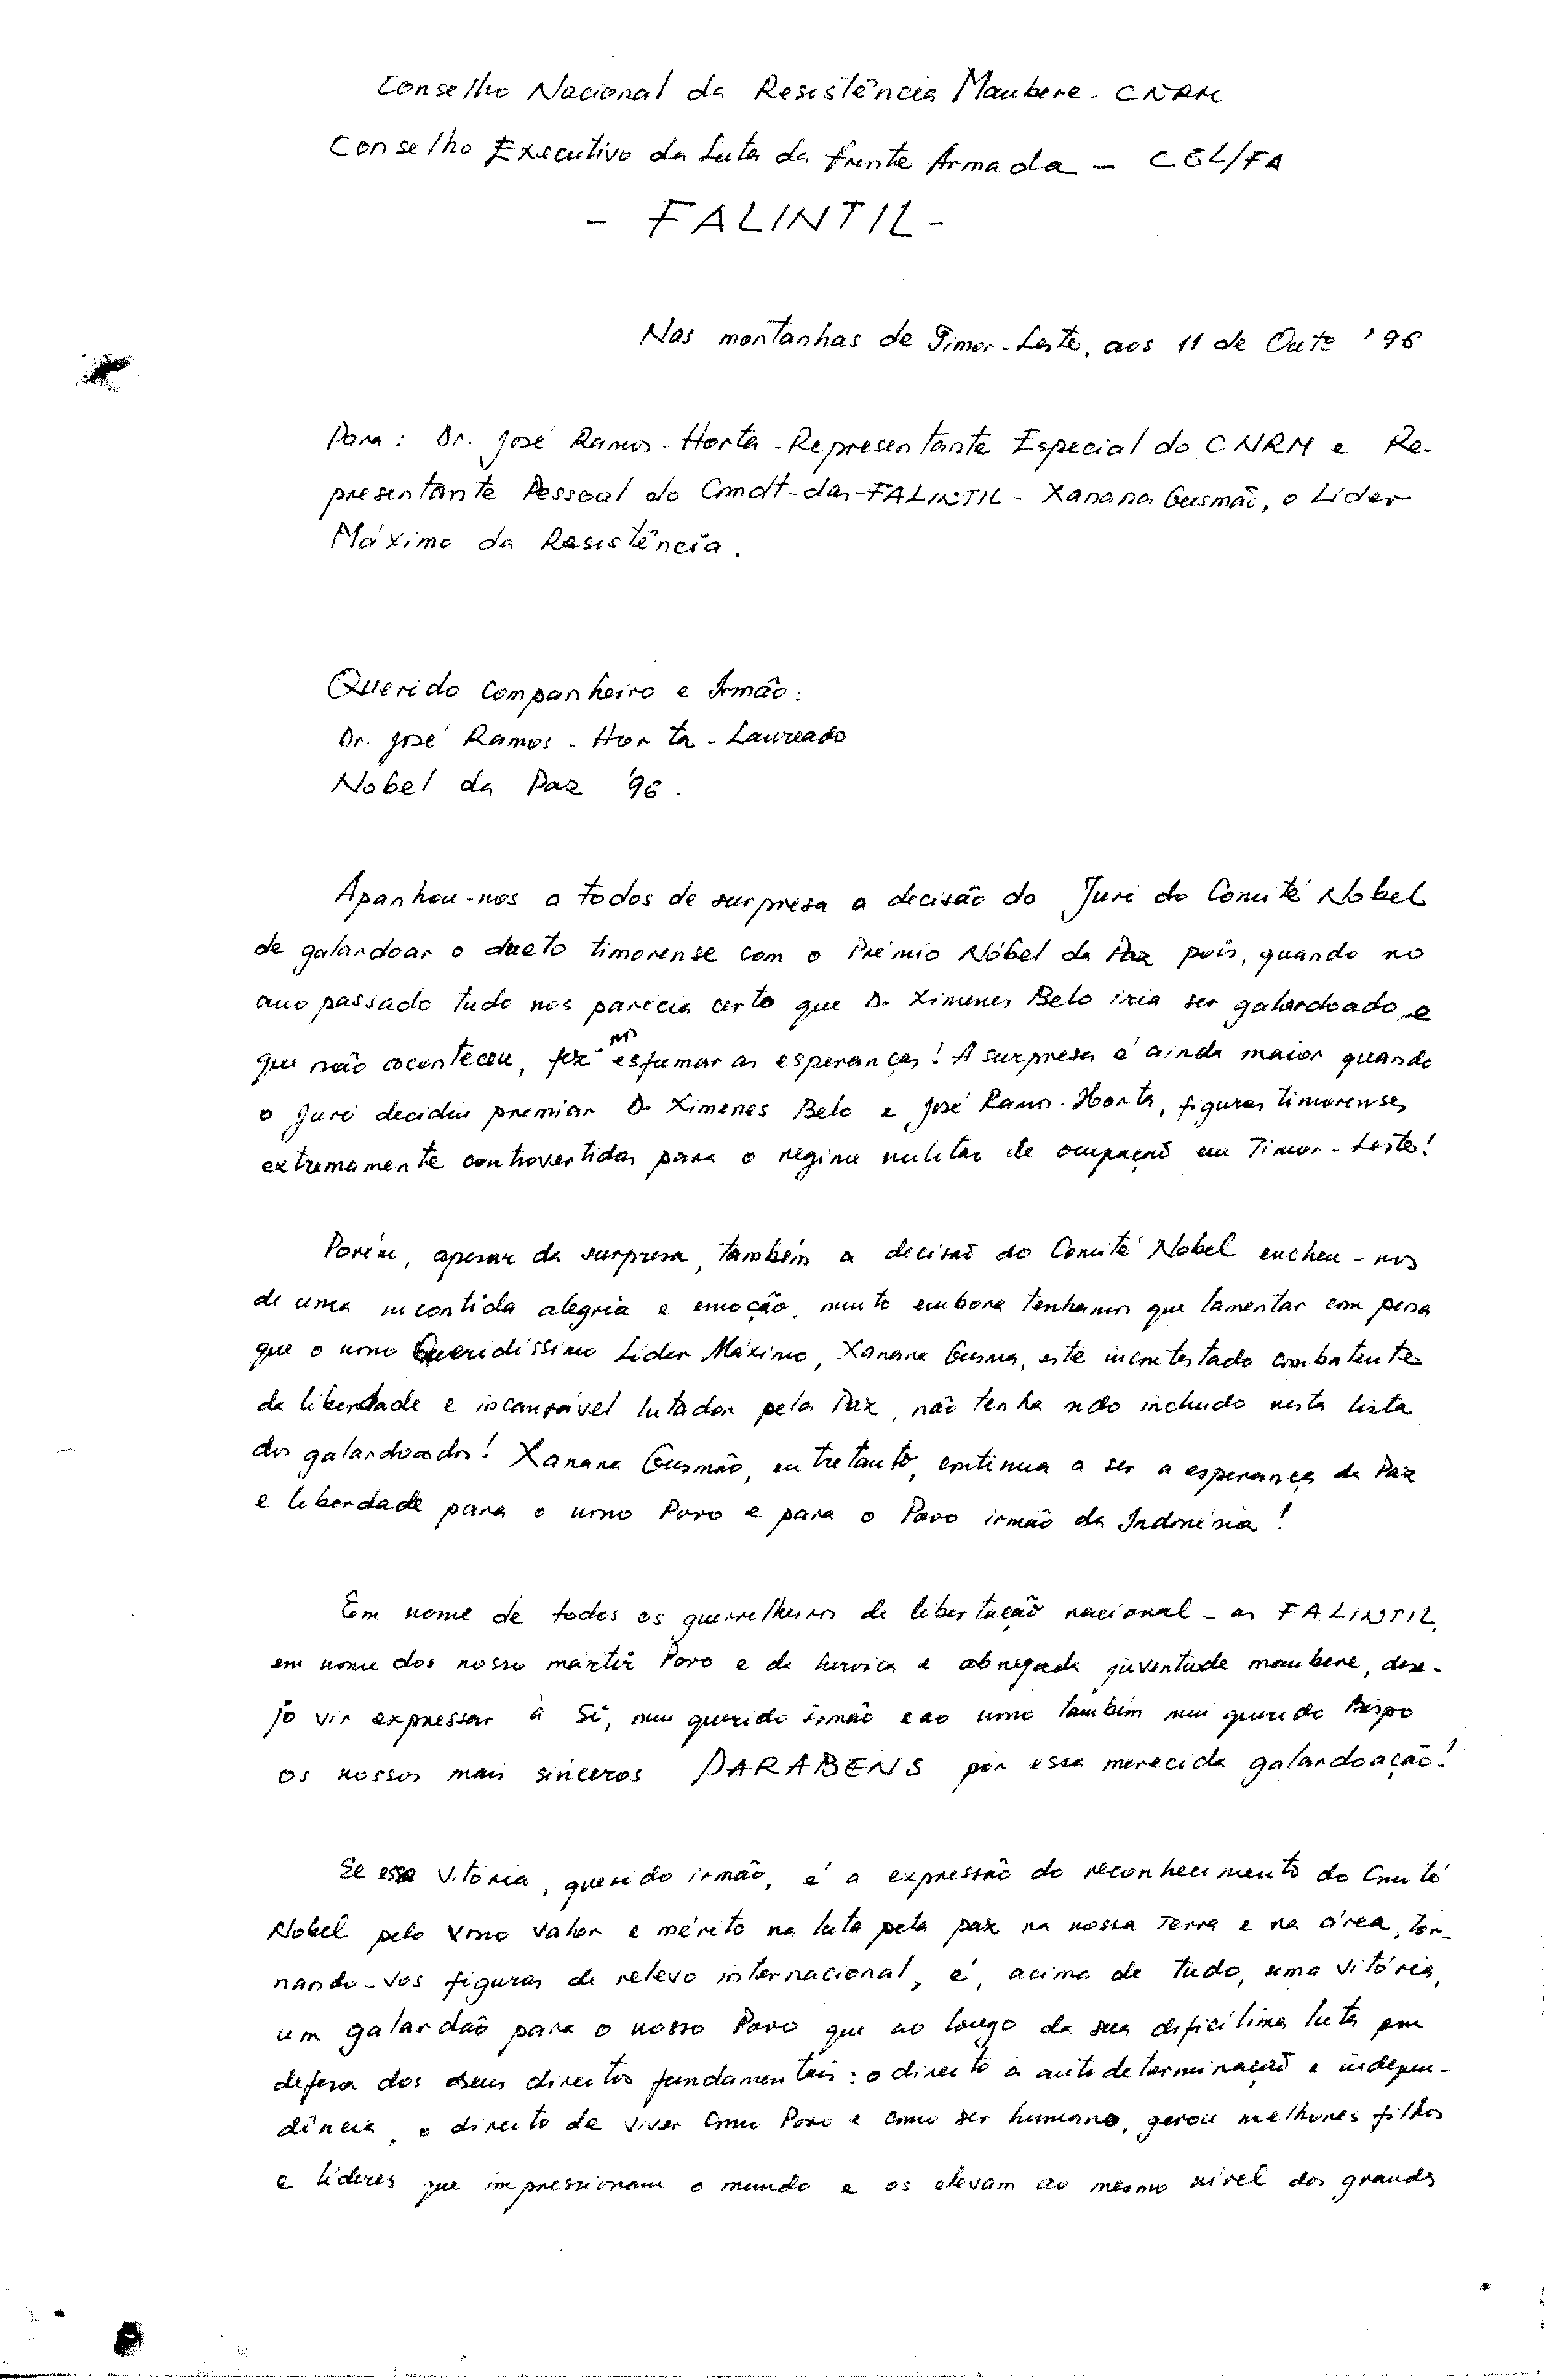 Conselho Nacional da Resistência Maubere - CNRM
Conselho Executivo da Luta da frente Armada - CEL/FA
- FALINTIL -
Nas montanhas de Timor-Leste, aos 11 de Outº '96
Para: Dr. José Ramos-Horta - Representante Especial do CNRM e Re-
presentante Pessoal do Cmdt-das-FALINTIL - Xanana Gusmão, o Líder
Máximo da Resistência.
Querido Companheiro e Irmão:
Dr. José Ramos-Horta - Laureado
Nobel da Paz '96.
Apanhou-nos a todos de surpresa a decisão do Juri do Comité Nobel
de galardoar o dueto timorense com o Prémio Nóbel da Paz pois, quando no
ano passado tudo nos parecia certo que D. Ximenes Belo iria ser galardoado e
que não aconteceu, fez-nos esfumar as esperanças! A surpresa é ainda maior quando
o Juri decidiu premiar D. Ximenes Belo e José Ramos-Horta, figuras timorenses
extremamente controvertidas para o regime militar de ocupação em Timor-Leste!
Porém, apesar da surpresa, também a decisão do Comité Nobel encheu-nos
de uma incontida alegria e emoção, muito embora tenhamos que lamentar com pena
que o nosso Queridíssimo Líder Máximo, Xanana Gusmão, este incontestado combatente
da liberdade e incansável lutador pela Paz, não tenha sido incluido nesta lista
dos galardoados! Xanana Gusmão, entretanto, continua a ser a esperança da Paz
e liberdade para o nosso Povo e para o Povo irmão da Indonésia!
Em nome de todos os guerrilheiros de libertação nacional - as FALINTIL,
em nome dos nosso mártir Povo e da heroica e abnegada juventude maubere, dese-
jo vir expressar à Si, meu querido irmão e ao nosso também mui querido Bispo
os nossos mais sinceros PARABENS por essa merecida galardoação!
Se essa vitória, querido irmão, é a expressão do reconhecimento do Comité
Nobel pelo vosso valor e mérito na luta pela paz na nossa Terra e na área, tor-
nando-vos figuras de relevo internacional, é, acima de tudo, uma vitória,
um galardão para o nosso Povo que ao longo da sua dificílima luta em
defesa dos seus direitos fundamentais: o direito à autodeterminação e indepen-
dência, o direito de viver como Povo e como ser humano, gerou melhores filhos
e líderes que impressionam o mundo e os elevam ao mesmo nível dos grandes